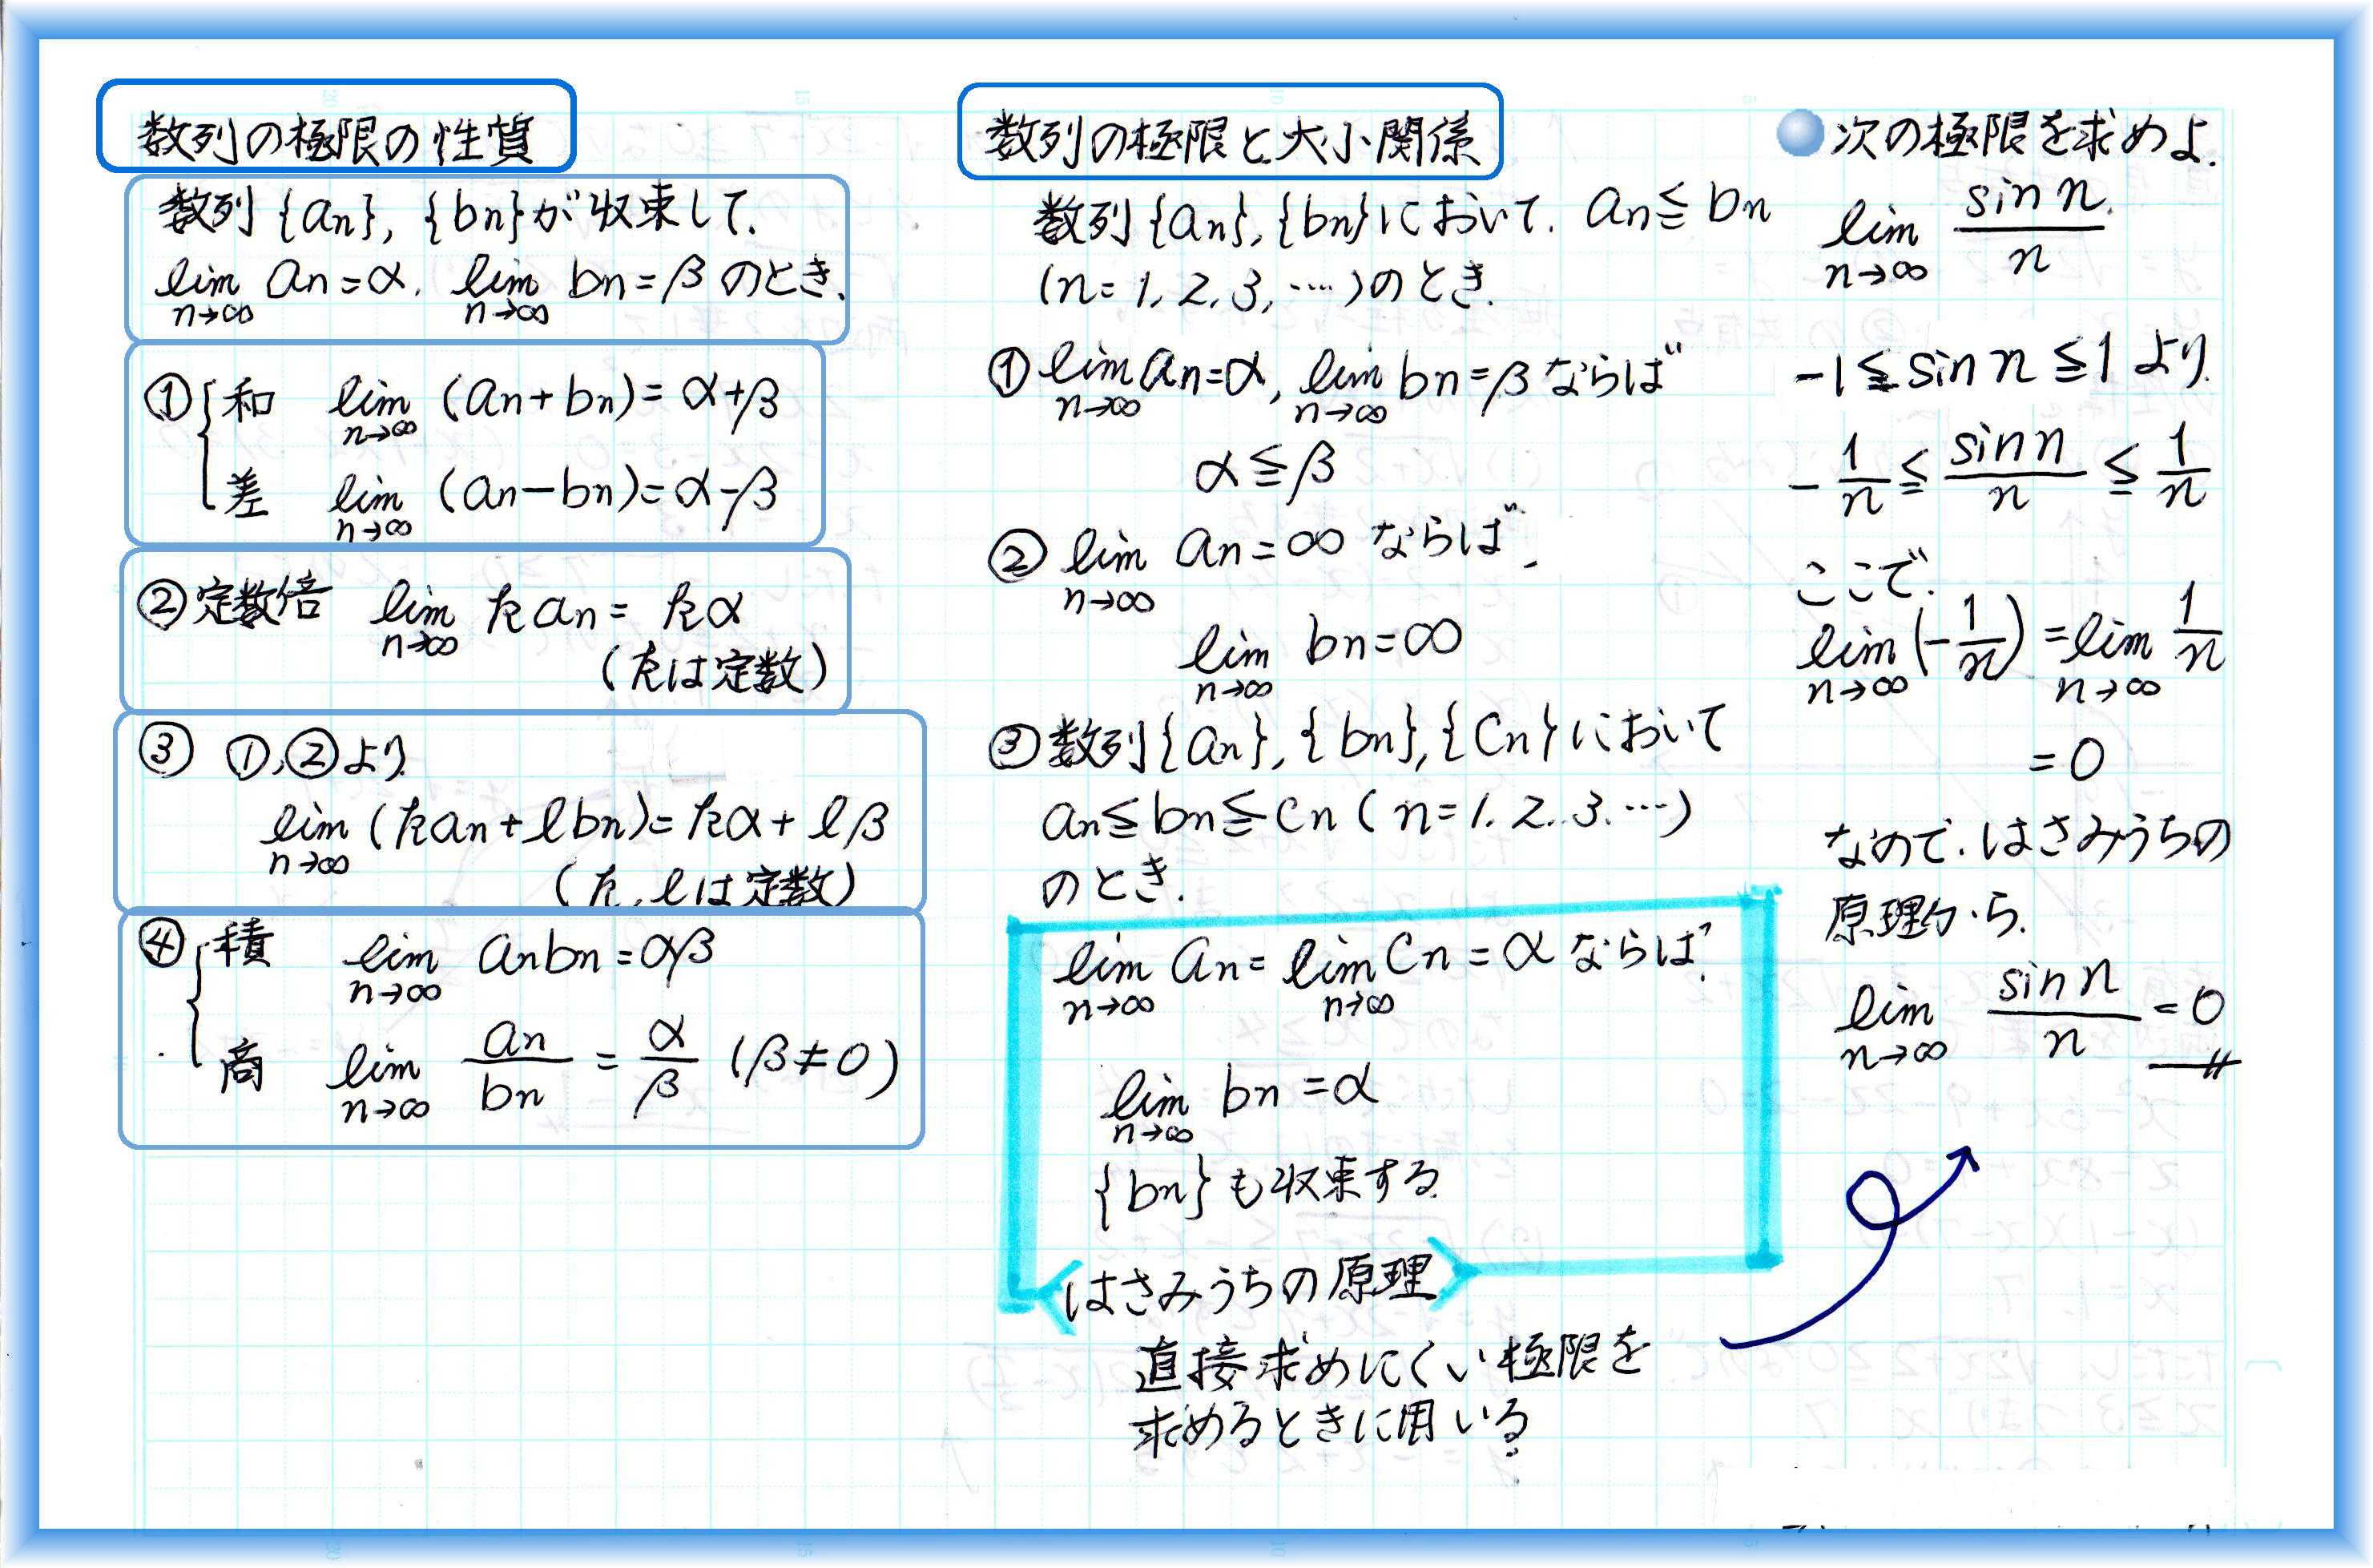 数列の極限の性質
数列{an}, {bn}が収束して、
lim n→∞ an=α, lim n→∞ bn=βのとき、
① 和 lim n→∞ (an+bn)=α+β
差 lim n→∞ (an-bn)=α-β
②定数倍 lim n→∞ kan=kα
(kは定数)
③ ①,②より
lim n→∞ (kan+lbn)=kα+lβ
(k, lは定数)
④ 積 lim n→∞ anbn=αβ
商 lim n→∞ an/bn = α/β (β≠0)
数列の極限と大小関係
数列{an},{bn}において、an≦bn
(n=1,2,3,…)のとき、
① lim n→∞ an=α, lim n→∞ bn=βならば
α≦β
② lim n→∞ an=∞ ならば、
lim n→∞ bn=∞
③数列{an},{bn},{Cn}において
an≦bn≦Cn(n=1,2,3,…)
のとき、
lim n→∞ an= lim n→∞ Cn=αならば、
lim n→∞ bn=α
{bn}も収束する
はさみうちの原理
直接求めにくい極限を
求めるときに用いる
次の極限を求めよ.
lim n→∞ sin n/n
-1≦sin n≦1より
-1/n≦sin n/n≦1/n
ここで、
lim n→∞ (-1/n)=lim n→∞ 1/n
=0
なので、はさみうちの
原理から、
lim n→∞ sin n/n=0